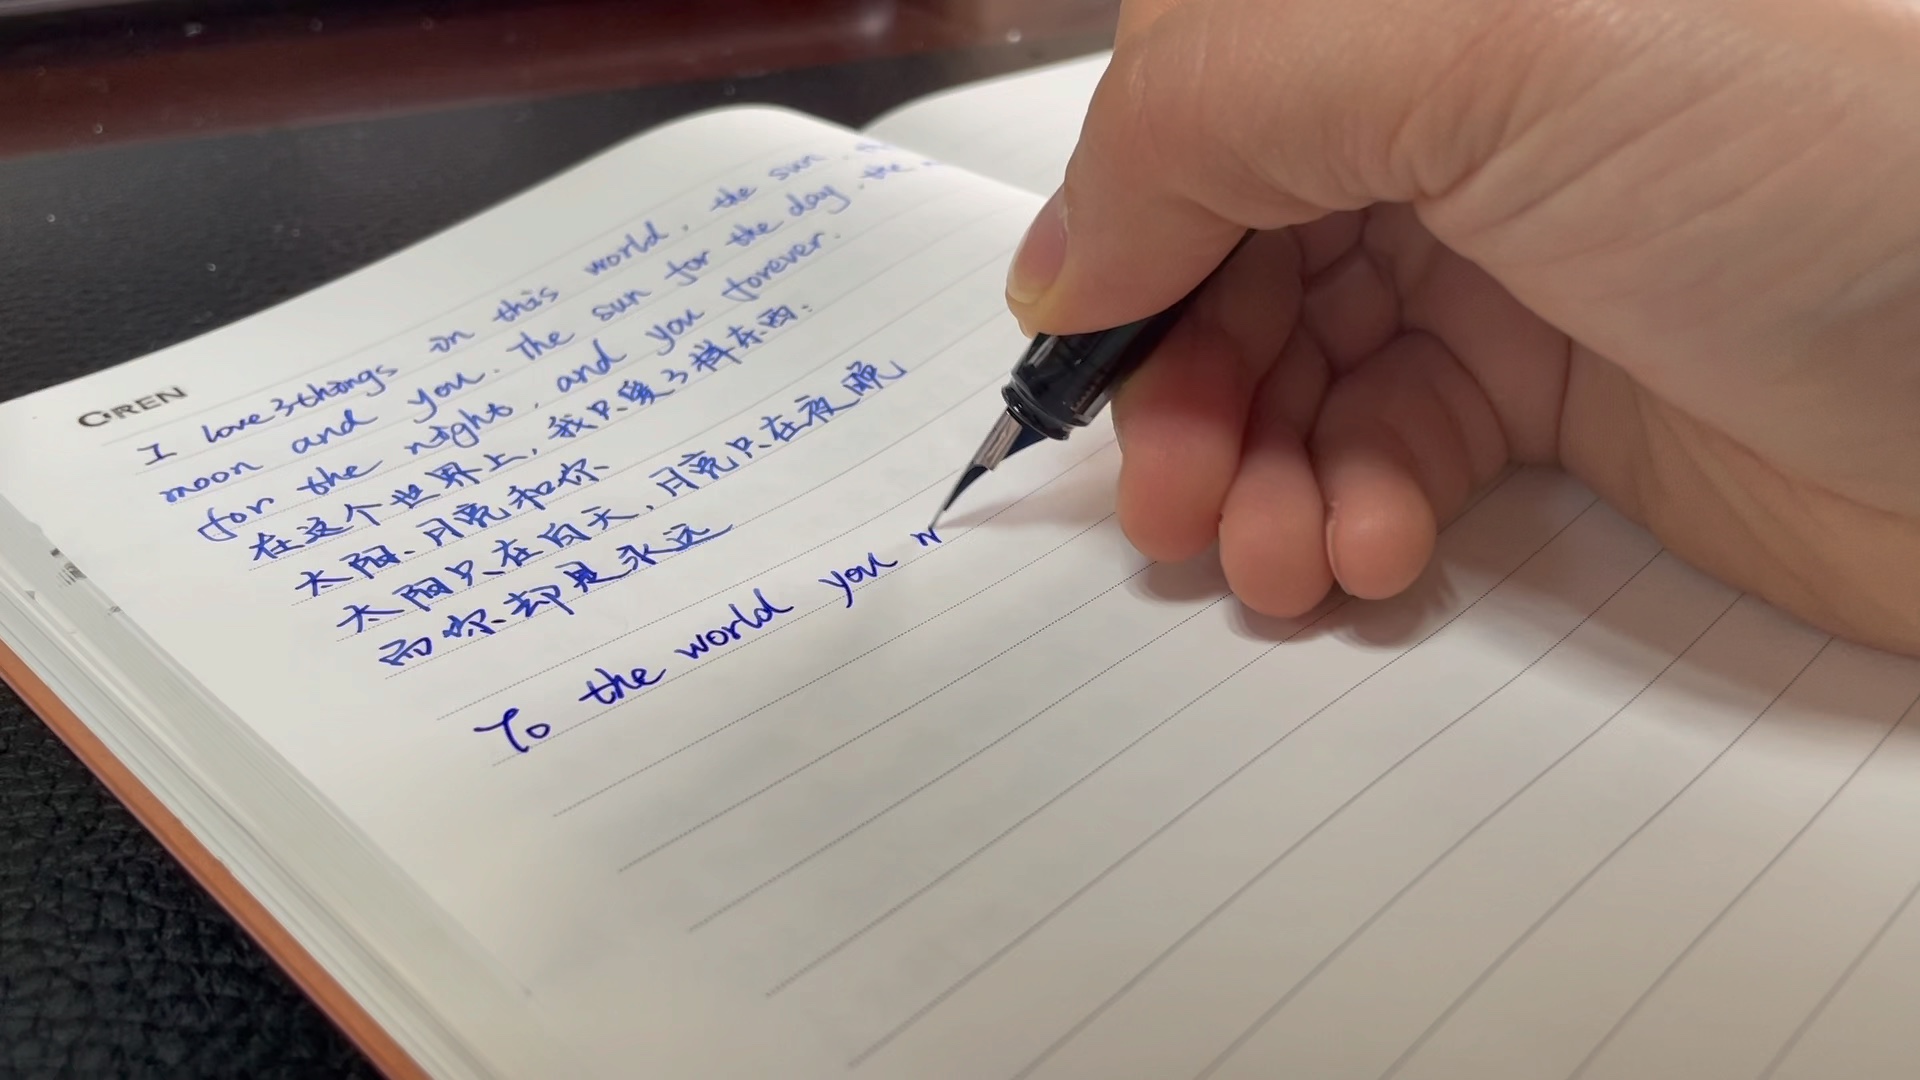 C·REN
I love 3 things in this world. the sun.
moon and you. The sun for the day. the
for the night, and you forever.
在这个世界上,我只爱3样东西:
太阳、月亮和你
太阳只在白天,月亮只在夜晚
而你却是永远
To the world you